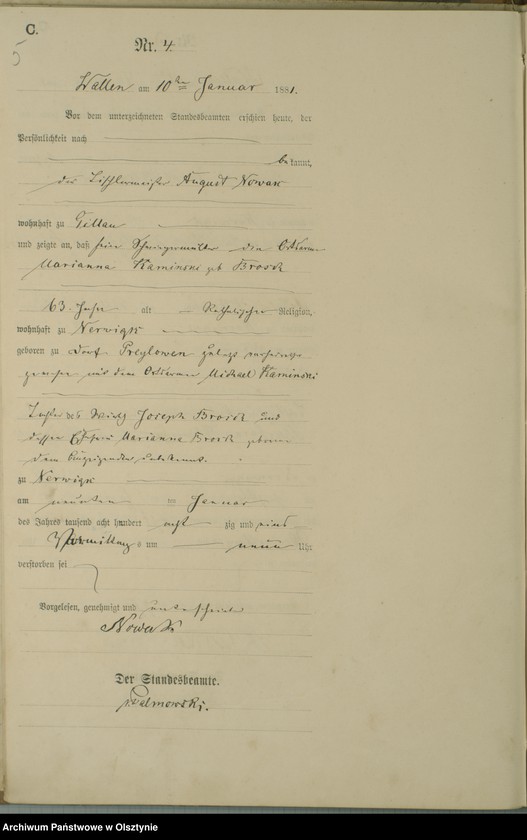 C.
5
Nr. 4.
Wallen am 10ten Januar 1881.
Vor dem unterzeichneten Standesbeamten erschien heute, der
Persönlichkeit nach
bekannt,
der Tischlermeister August Nowak
wohnhaft zu
und zeigte an, daß seine Schwiegermutter die
Marianna Kaminski geb Brosch
63 Jahr alt Katholischer Religion,
wohnhaft zu Nerwigk
geboren zu Dorf Preylowen zuletzt verheirathet
gewesen mit dem Michael Kaminski
Tochter des Joseph Brosch und
dessen Ehefrau Marianna Brosch geborene
dem Anzeigenden unbekannt.
zu Nerwigk
am neunten Januar
des Jahres tausend acht hundert acht zig und eins
Vormittags um neun Uhr
verstorben sei
Vorgelesen, genehmigt und unterschrieben
Nowak
Der Standesbeamte.
Palmowski.
Archiwum Państwowe w Olsztynie